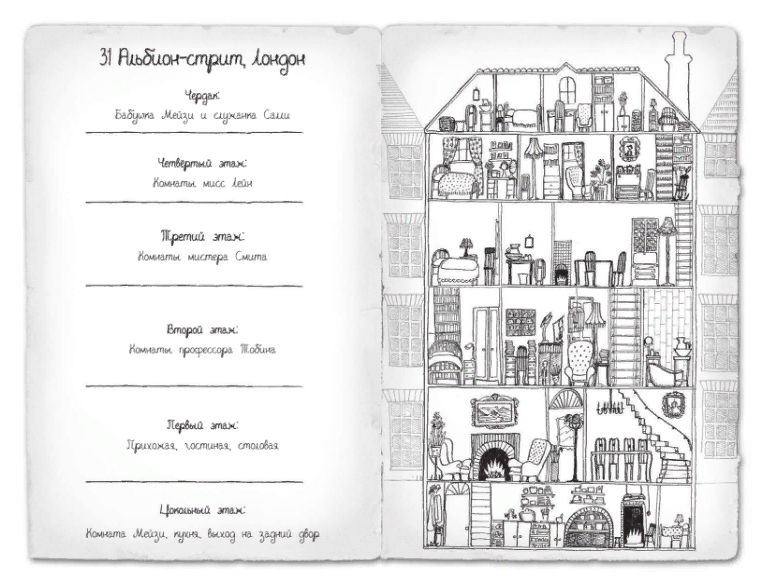 31 Альбион-стрит, Лондон
Чердак:
Бабушка Мейзи и служанка Сали
Четвертый этаж:
Комнаты мисс Лейн
Третий этаж:
Комнаты мистера Смита
Второй этаж:
Комнаты профессора Тобина
Первый этаж:
Прихожая, гостиная, столовая
Цокольный этаж:
Комната Мейзи, кухня, выход на задний двор